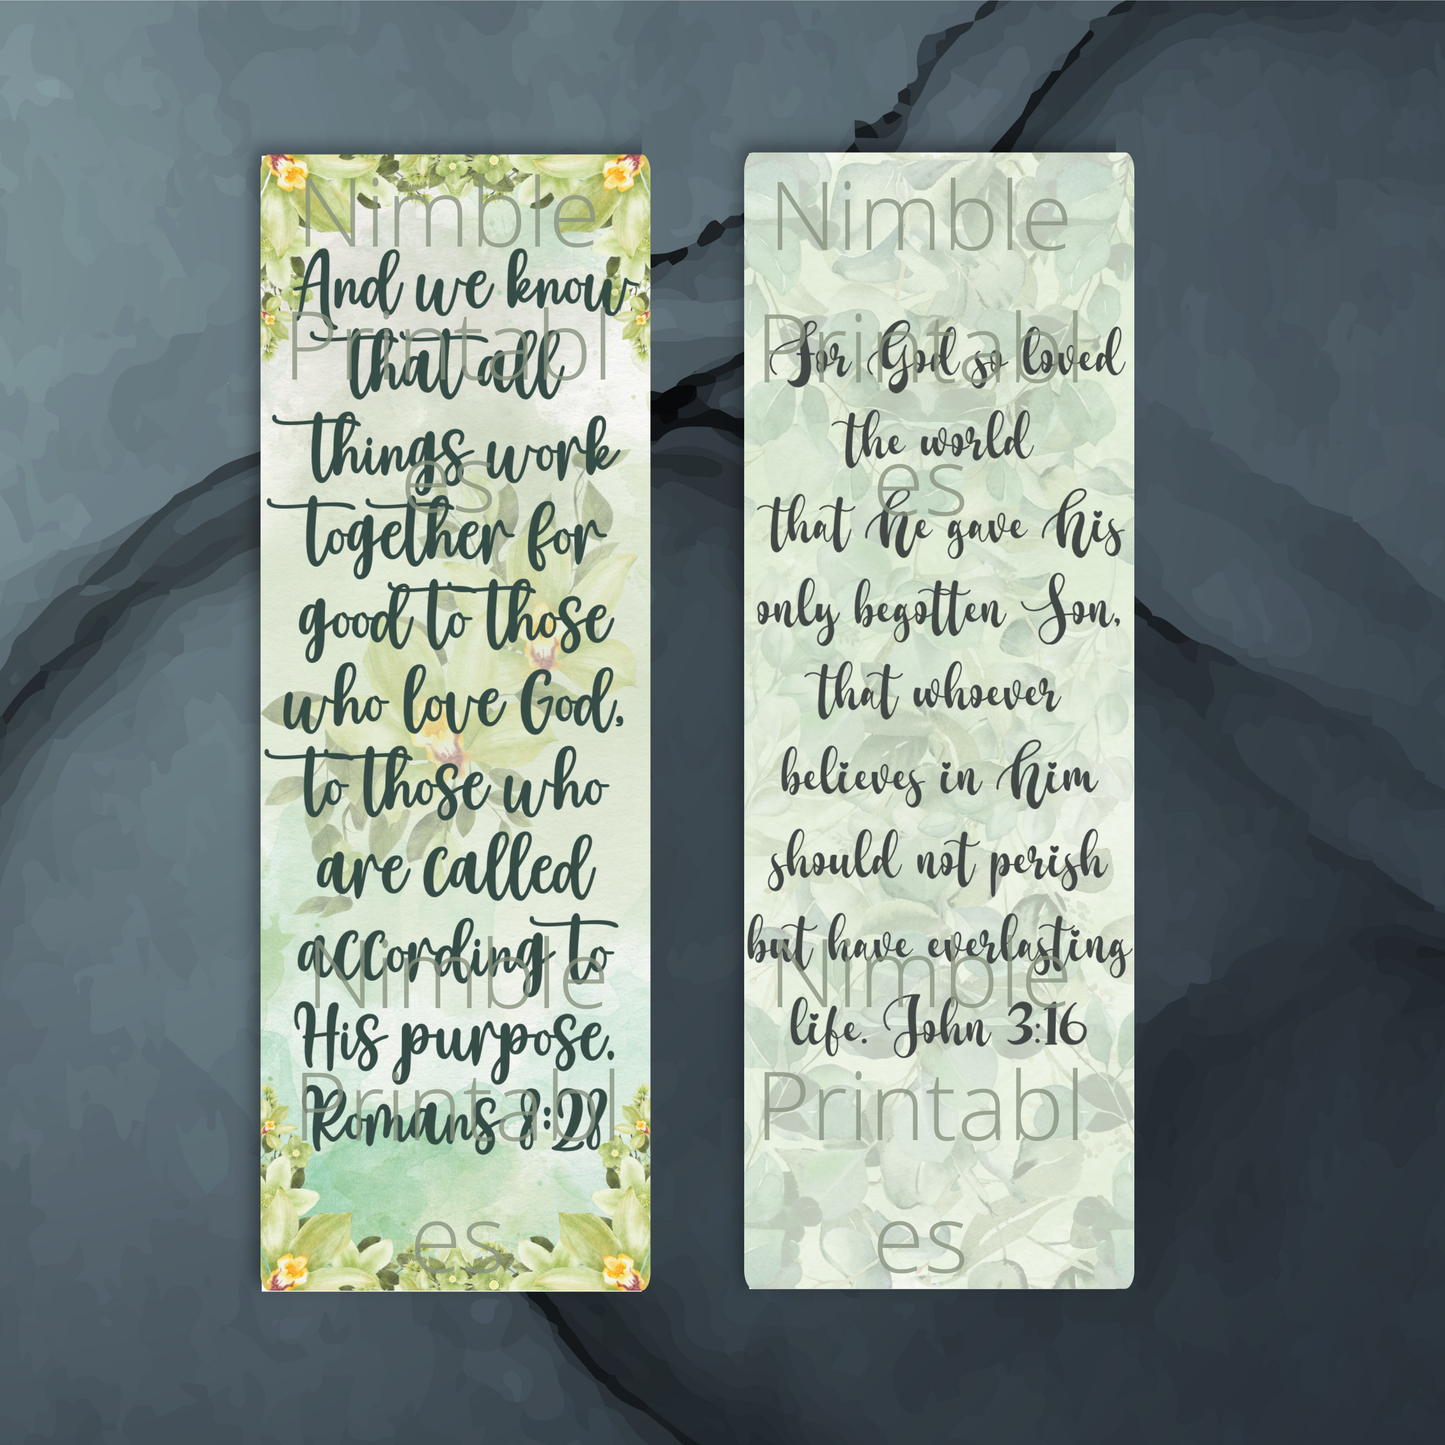 Nimble
Printabl
es
And we know
that all
things work
together for
good to those
who love God,
to those who
are called
according to
His purpose.
Romans 8:28
Nimble
Printabl
es
Nimble
Printabl
es
For God so loved
the world
that He gave His
only begotten Son,
that whoever
believes in Him
should not perish
but have everlasting
life. John 3:16
Nimble
Printabl
es